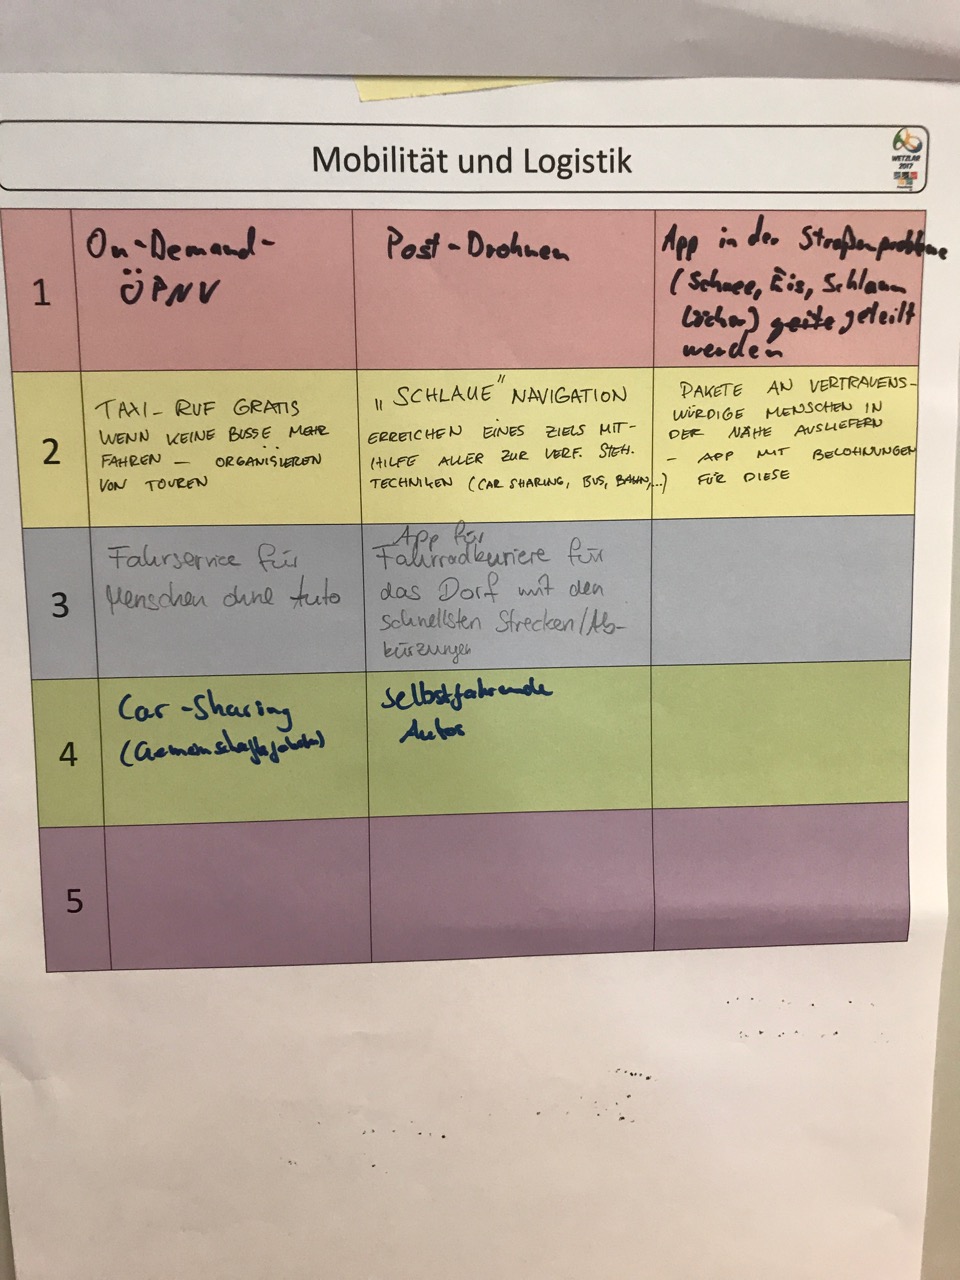 Mobilität und Logistik
WETZLAR
2017
1
On-Demand-
ÖPNV
Post-Drohnen
App in der Straßenprobleme
(Schnee, Eis, Schlamm
Löcher) geteilt
werden
2
TAXI-RUF GRATIS
WENN KEINE BUSSE MEHR
FAHREN - ORGANISIEREN
VON TOUREN
"SCHLAUE" NAVIGATION
ERREICHEN EINES ZIELS MIT-
HILFE ALLER ZUR VERF. STEH.
TECHNIKEN (CAR SHARING, BUS, BAHN,...)
PAKETE AN VERTRAUENS-
WÜRDIGE MENSCHEN IN
DER NÄHE AUSLIEFERN
- APP MIT BELOHNUNGEN
FÜR DIESE
3
Fahrservice für
Menschen ohne Auto
App für
Fahrradkuriere für
das Dorf mit den
schnellsten Strecken/Ab-
kürzungen
4
Car-Sharing
(Gemeinschaftsfahrten)
Selbstfahrende
Autos
5